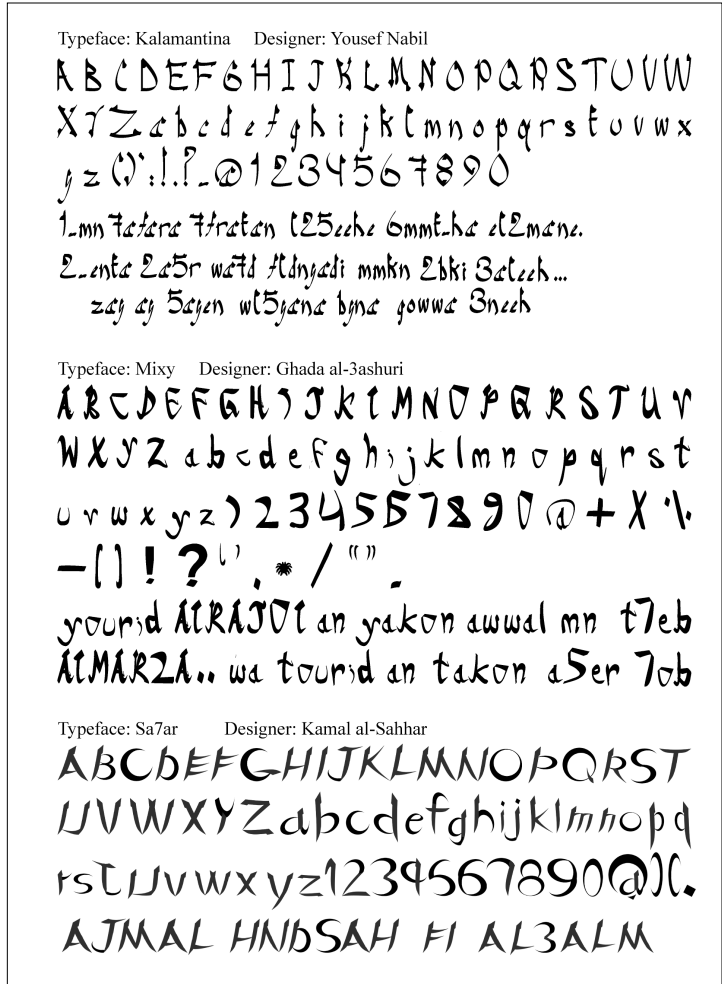 Typeface: Kalamantina Designer: Yousef Nabil
A B C D E F G H I J K L M N O P Q R S T U V W
X Y Z a b c d e f g h i j k l m n o p q r s t u v w x
y z ( ) ' : ! . ? - @ 1 2 3 4 5 6 7 8 9 0
1_mn 7afara 7fratan l25eehe 6mmt_ha el2mane.
2_enta 2a5r wa7d fldnyadi mmkn 2bki 3aleeh...
zay ay 5ayen wl5yana byna gowwa 3neeh
Typeface: Mixy Designer: Ghada al-3ashuri
A B C D E F G H I J K L M N O P Q R S T U V
W X Y Z a b c d e f g h i j k l m n o p q r s t
u v w x y z 1 2 3 4 5 6 7 8 9 0 @ + X %
- ( ) ! ? ‘ ’ , * / “ ” .
yourid AlRAJOl an yakon awwal mn t7eb
AlMAR2A.. wa tourid an takon a5er 7ob
Typeface: Sa7ar Designer: Kamal al-Sahhar
A B C D E F G H I J K L M N O P Q R S T
U V W X Y Z a b c d e f g h i j k l m n o p q
r s t u v w x y z 1 2 3 4 5 6 7 8 9 0 @ ) ( .
AJMAL HNDSAH FI AL3ALM